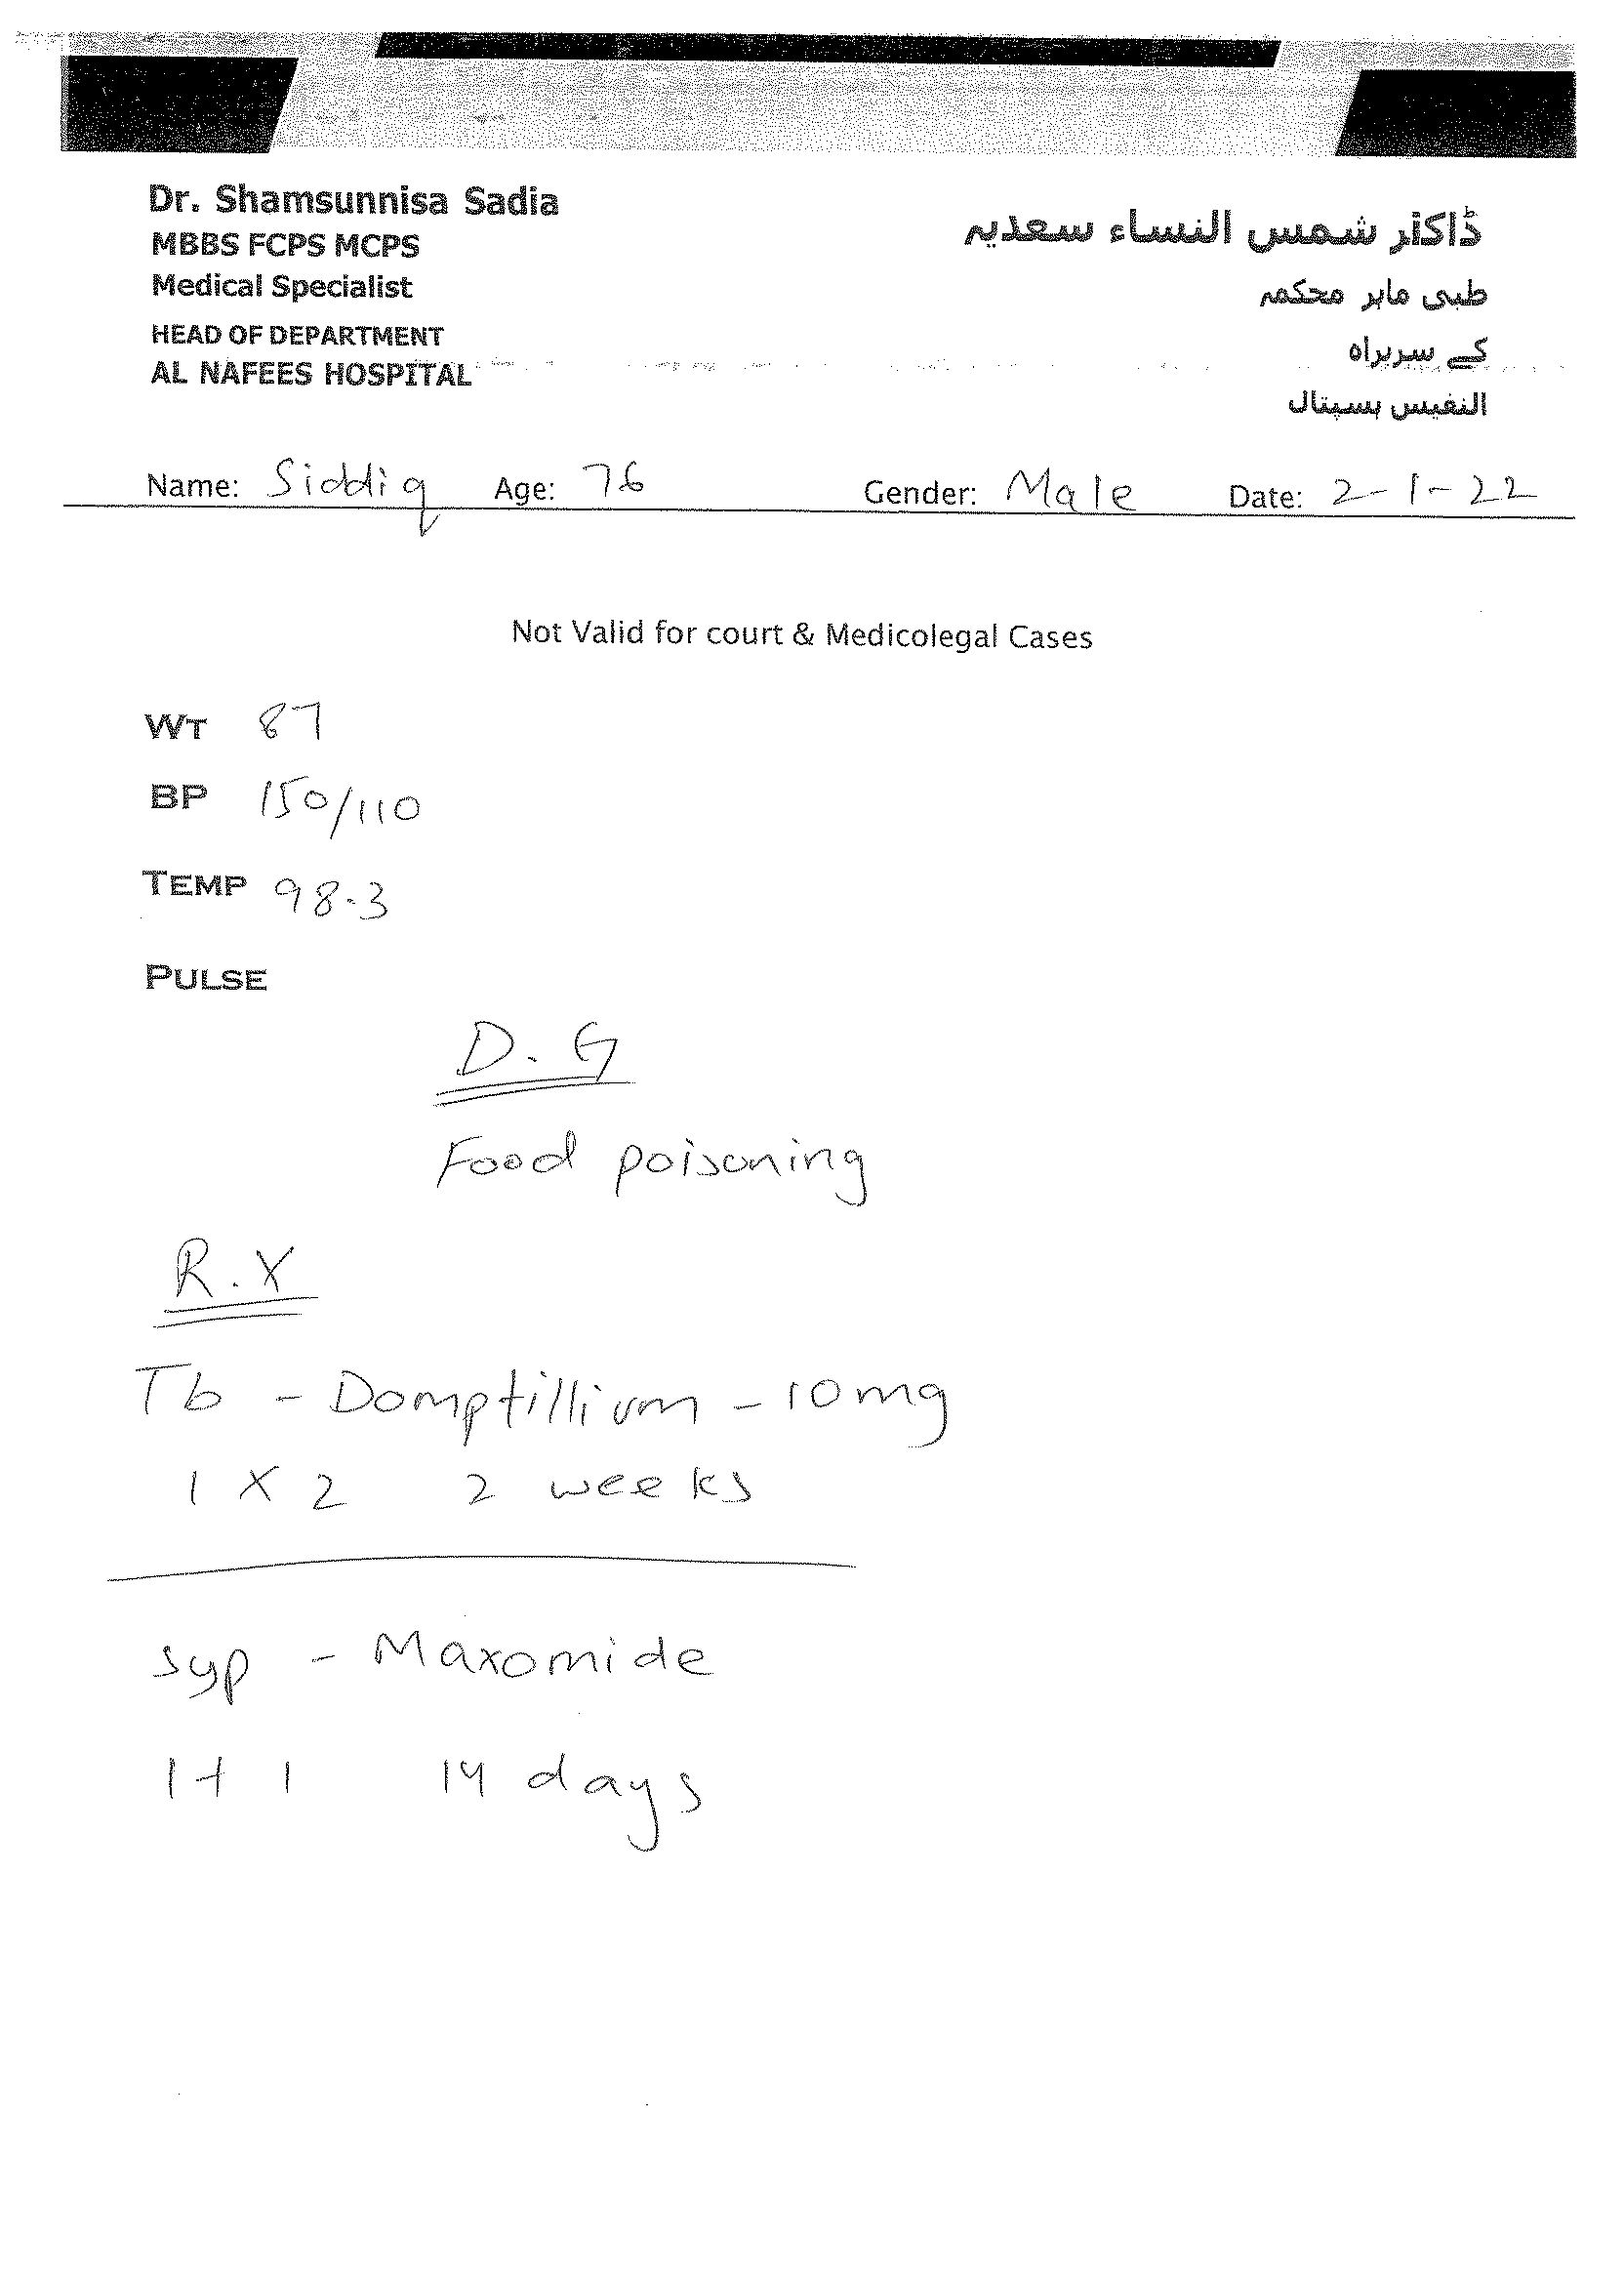 Dr. Shamsunnisa Sadia
MBBS FCPS MCPS
Medical Specialist
HEAD OF DEPARTMENT
AL NAFEES HOSPITAL
ڈاکٹر شمس النساء سعدیہ
طبی ماہر محکمہ
کے سربراہ
النفیس ہسپتال
Name: Siddiq Age: 76 Gender: Male Date: 2-1-22
Not Valid for court & Medicolegal Cases
WT 87
BP 150/110
TEMP 98.3
PULSE
D.G
Food poisoning
R.X
Tb - Domptillium - 10mg
1 X 2 2 weeks
syp - Maxomide
1+1 14 days